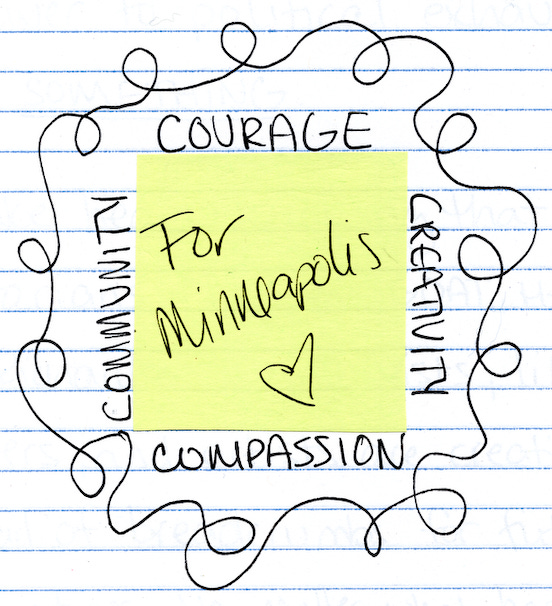 COURAGE
COMMUNITY
For
Minneapolis
CREATIVITY
COMPASSION